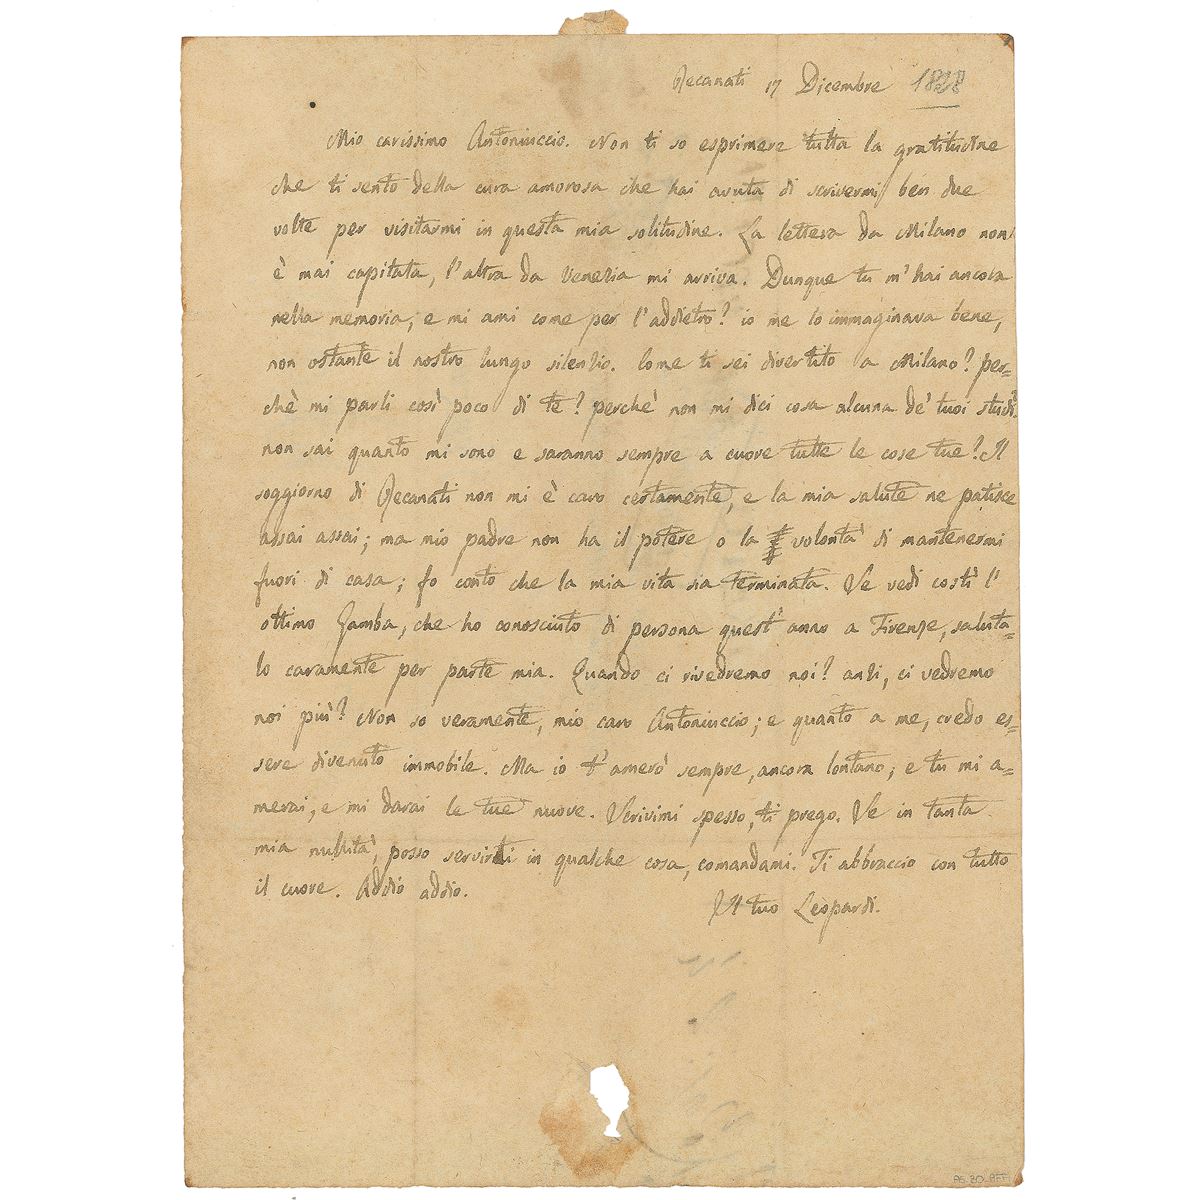 Recanati 17 Dicembre 1828
Mio carissimo Antoniuccio. Non ti so esprimere tutta la gratitudine
che ti sento della cura amorosa che hai avuta di scrivermi ben due
volte per visitarmi in questa mia solitudine. La lettera da Milano non
è mai capitata, l'altra da Venezia mi arriva. Dunque tu m'hai ancora
nella memoria, e mi ami come per l'addietro? io me lo immaginava bene,
non ostante il nostro lungo silenzio. Come ti sei divertito a Milano? per=
chè mi parli così poco di te? perchè non mi dici cosa alcuna de' tuoi studi?
non sai quanto mi sono e saranno sempre a cuore tutte le cose tue? Il
soggiorno di Recanati non mi è caro certamente, e la mia salute ne patisce
assai assai; ma mio padre non ha il potere o la volontà di mantenermi
fuori di casa; fo conto che la mia vita sia terminata. Se vedi costì l'
ottimo Zamba, che ho conosciuto di persona quest'anno a Firenze, saluta-
lo caramente per parte mia. Quando ci rivedremo noi? anzi, ci vedremo
noi più? Non so veramente, mio caro Antoniuccio; e quanto a me, credo es=
sere divenuto immobile. Ma io t'amerò sempre, ancora lontano; e tu mi a=
merai, e mi darai le tue nuove. Scrivimi spesso, ti prego. Se in tanta
mia nullità, posso servirti in qualche cosa, comandami. Ti abbraccio con tutto
il cuore. Addio addio.
Il tuo Leopardi.